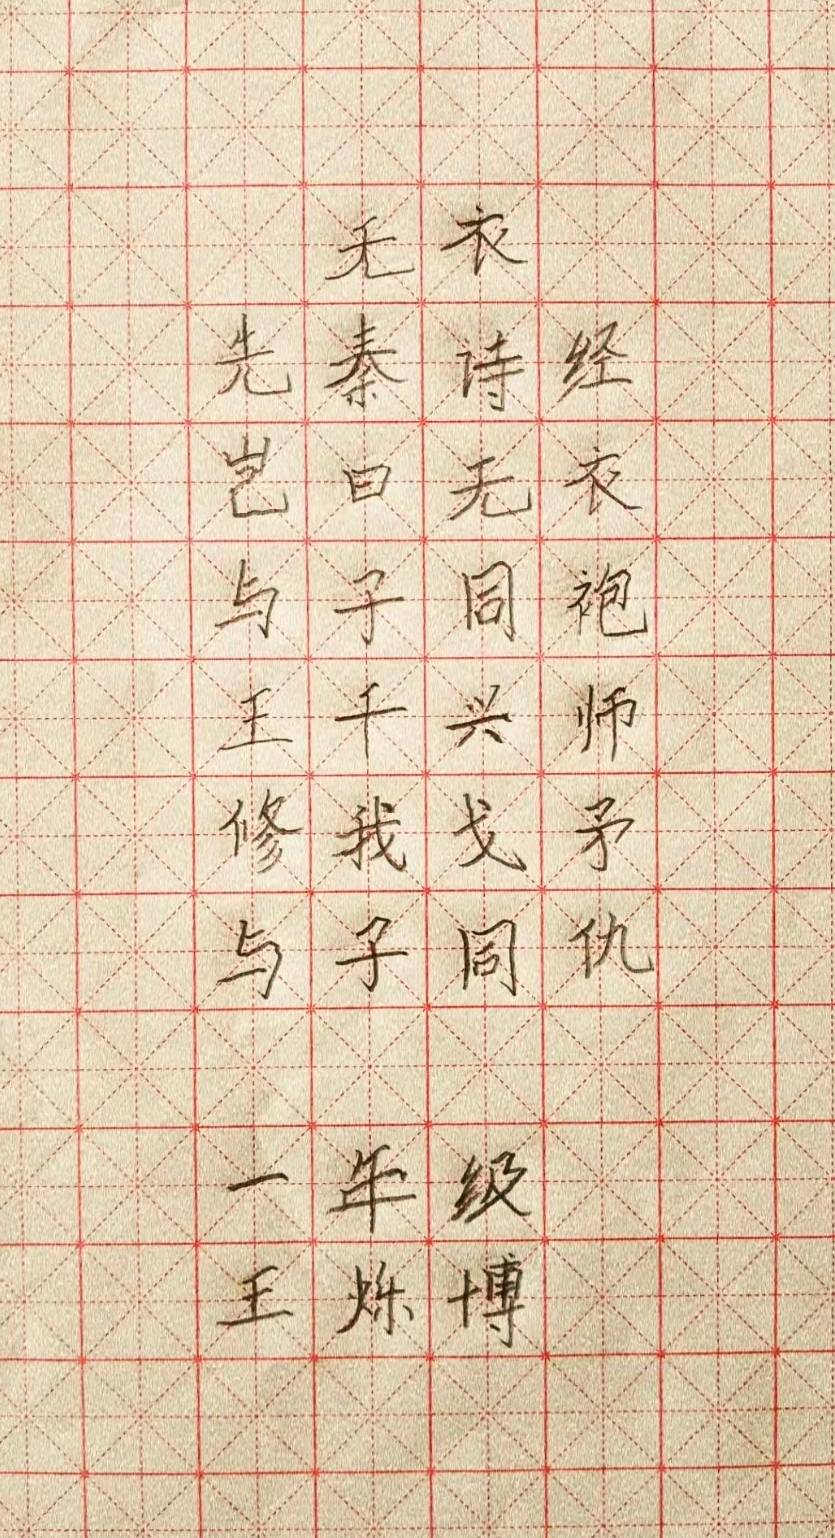 无衣
先秦诗经
岂曰无衣
与子同袍
王千兴师
修我戈矛
与子同仇
一年级
王烁博